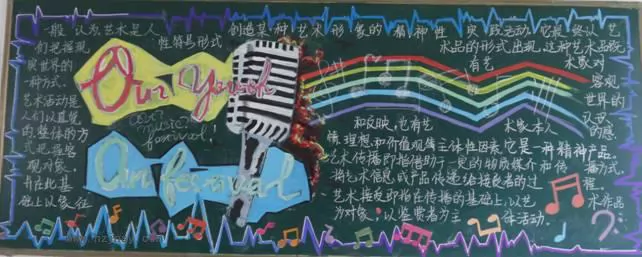 一般认为艺术是人
们把握现
实世界的
一种方式.
艺术活动是
人们以直觉
的,整体的方
式把握客
观对象,
并在此基
础上以象征
性符号形式
创造某种艺术形象的精神性实践活动.它最终以艺
术品的形式出现,这种艺术品既
有艺术家对
客观
世界的
认识
和反映,也有艺术家本人的感
情、理想和价值观等主体性因素,它是一种精神产品.
艺术传播即指借助于一定的物质媒介和传播方式,
将艺术信息或产品传递给接受者的过程.
艺术接受即指在传播的基础上,以艺术作品
为对象,以鉴赏者为主体活动.
Our Youth
our
music
festival!
Our festival